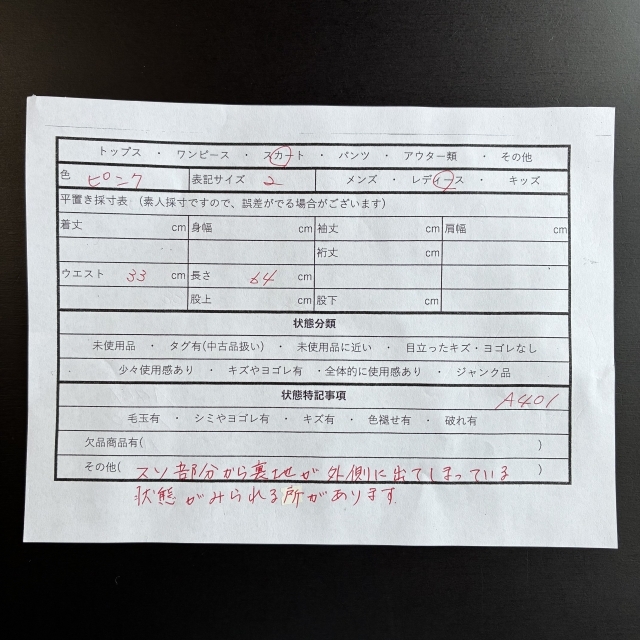 トップス ・ ワンピース ・ スカート ・ パンツ ・ アウター類 ・ その他
色 ピンク 表記サイズ 2 メンズ ・ レディース ・ キッズ
平置き採寸表 (素人採寸ですので、誤差がでる場合がございます)
着丈 cm 身幅 cm 袖丈 cm 肩幅 cm
裄丈 cm
ウエスト 33 cm 長さ 64 cm
股上 cm 股下 cm
状態分類
未使用品 ・ タグ有(中古品扱い) ・ 未使用品に近い ・ 目立ったキズ・ヨゴレなし
少々使用感あり ・ キズやヨゴレ有 ・全体的に使用感あり ・ ジャンク品
状態特記事項 A401
毛玉有 ・ シミやヨゴレ有 ・ キズ有 ・ 色褪せ有 ・ 破れ有
欠品商品有( )
その他( スソ部分から裏地が外側に出てしまっている )
状態がみられる所があります